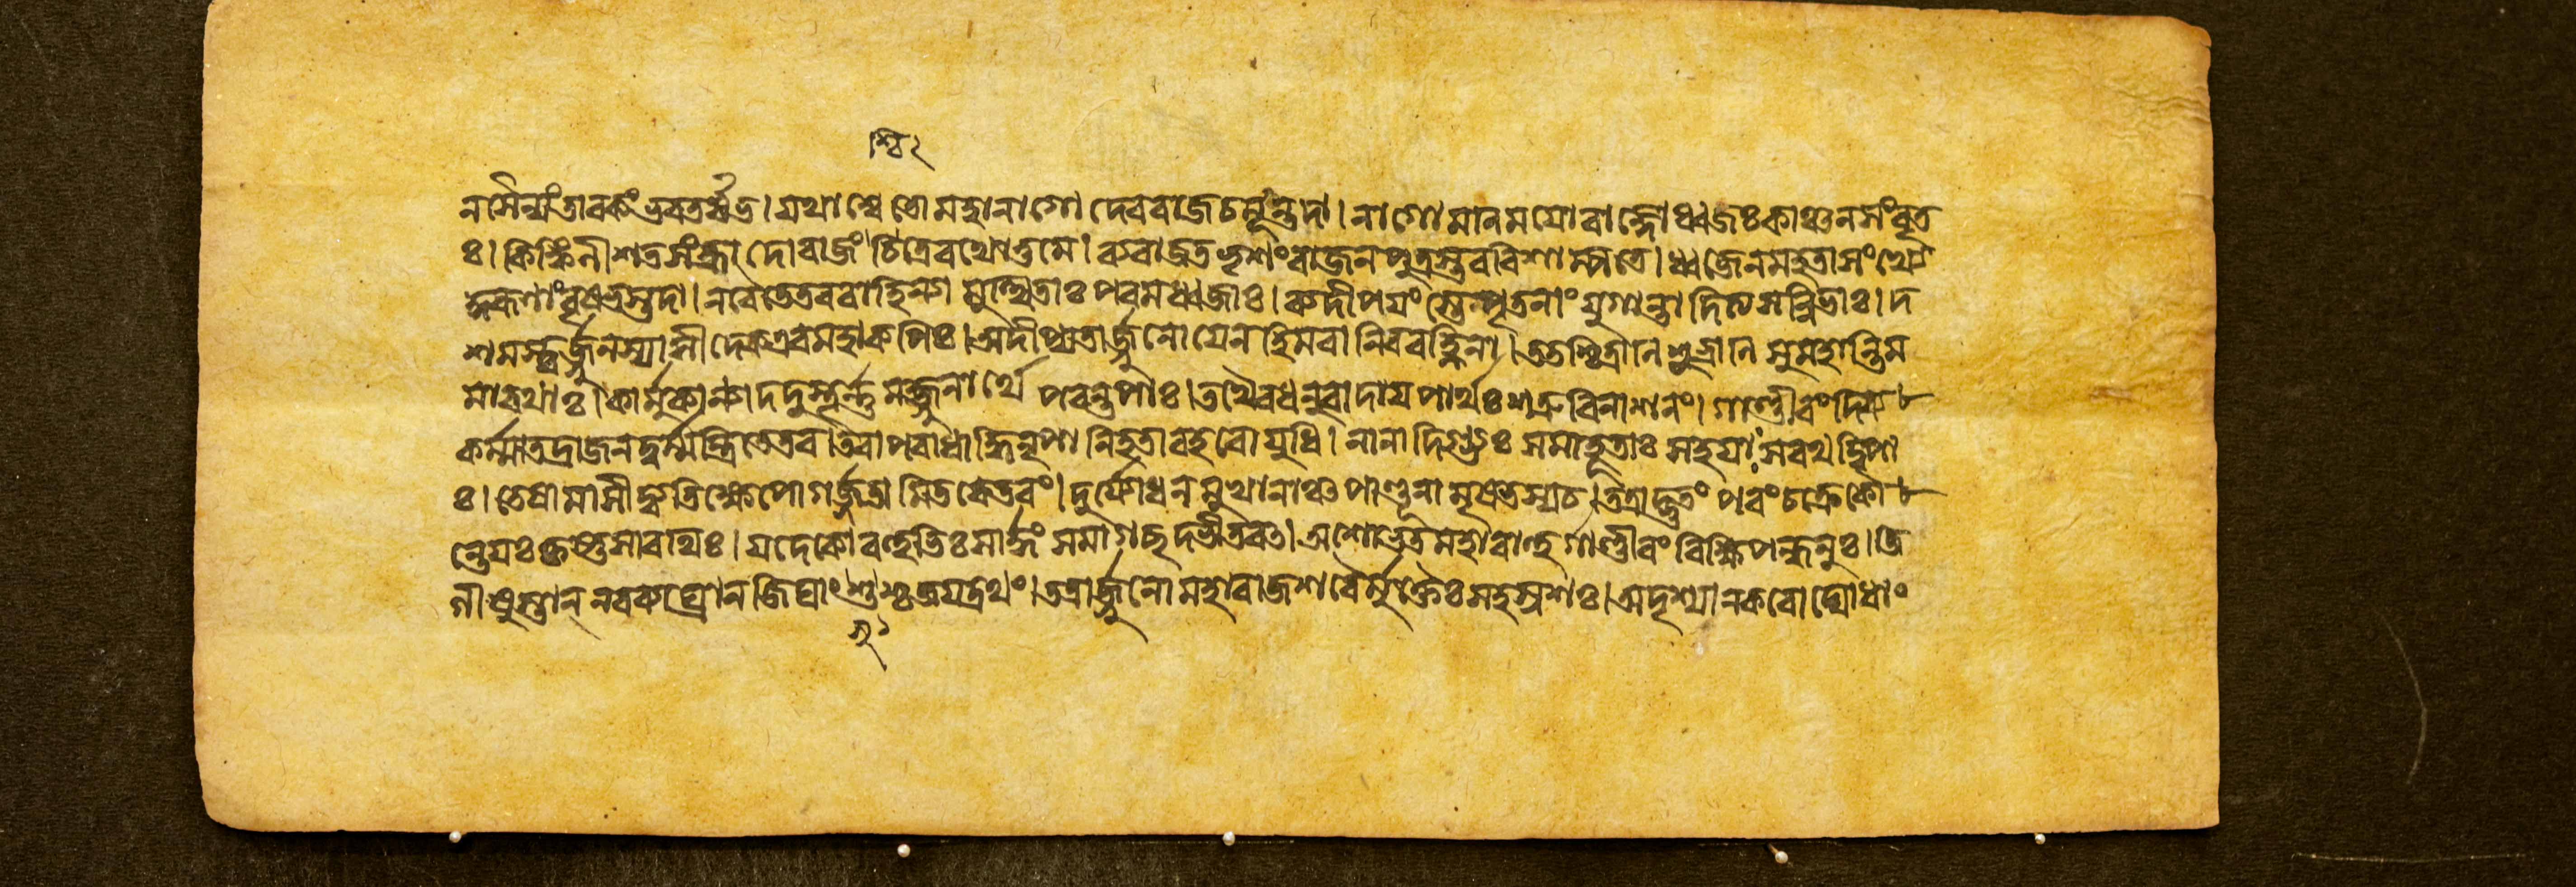 শ্চি২
নসৈন্যং তাবকং ভরতর্ষভ। যথা শ্বেতো মহানাগো দেবরাজচমূন্তদা। নাগো মানময়ো রাজ্ঞো ধ্বজঃ কাঞ্চনসংবৃত
ঃ। কিঙ্কিনীশতসংহ্রাদো রাজং চিত্রে রথোত্তমে। ব্যরাজত ভৃশং রাজন পুত্রস্তব বিশাম্পতে। ধ্বজেন মহতা সংখ্যে
কুরূণাং বৃষভস্তদা। নবৈতে তব বাহিন্যামুচ্ছ্রিতাঃ পরমধ্বজাঃ। ব্যদীপয়ংস্তে পৃতনাং যুগান্তাদিত্যসন্নিভাঃ। দ
শমস্ত্বর্জ্জুনস্যাসীদেক এব মহাকপিঃ। অদীপ্যতার্জ্জুনো যেন হিমবানিব বহ্নিনা। ততশ্চিত্রানি শুভ্রানি সুমহান্তি ম
হারথাঃ। কার্মুকান্যাদদুস্তূর্ন্নমর্জ্জুনার্থে পরন্তপাঃ। তথৈব ধনুরাদায় পার্থঃ শত্রুবিনাশনং। গাণ্ডীবং দিব্য
কর্ম্মা তদ্রাজন দুর্ম্মন্ত্রিতে তব। তবাপরাধাদ্ধি নৃপা নিহতা বহবো যুধি। নানাদিগ্ভ্যঃ সমাহূতাঃ সহয়াঃ সরথদ্বিপা
ঃ। তেষামাসীদ্ব্যতিক্ষেপো গর্জ্জতামিতরেতরং। দুর্যোধনমুখানাঞ্চ পাণ্ডূনামৃষভস্য চ। তত্রাদ্ভুতং পরং চক্রে কৌ
ন্তেয়ঃ কৃষ্ণসারথিঃ। যদেকো বহুভিঃ সার্দ্ধং সমাগছদভীতবৎ। অশোভত মহাবাহুর্গাণ্ডীবং বিক্ষিপন্ধনুঃ। জি
গীষুস্তান্ নরব্যাঘ্রান জিঘাংসুশ্চ জয়দ্রথং। তত্রার্জ্জুনো মহারাজ শরৈর্মুক্তৈঃ সহস্রশঃ। অদৃশ্যানকরোদ্যোধাং